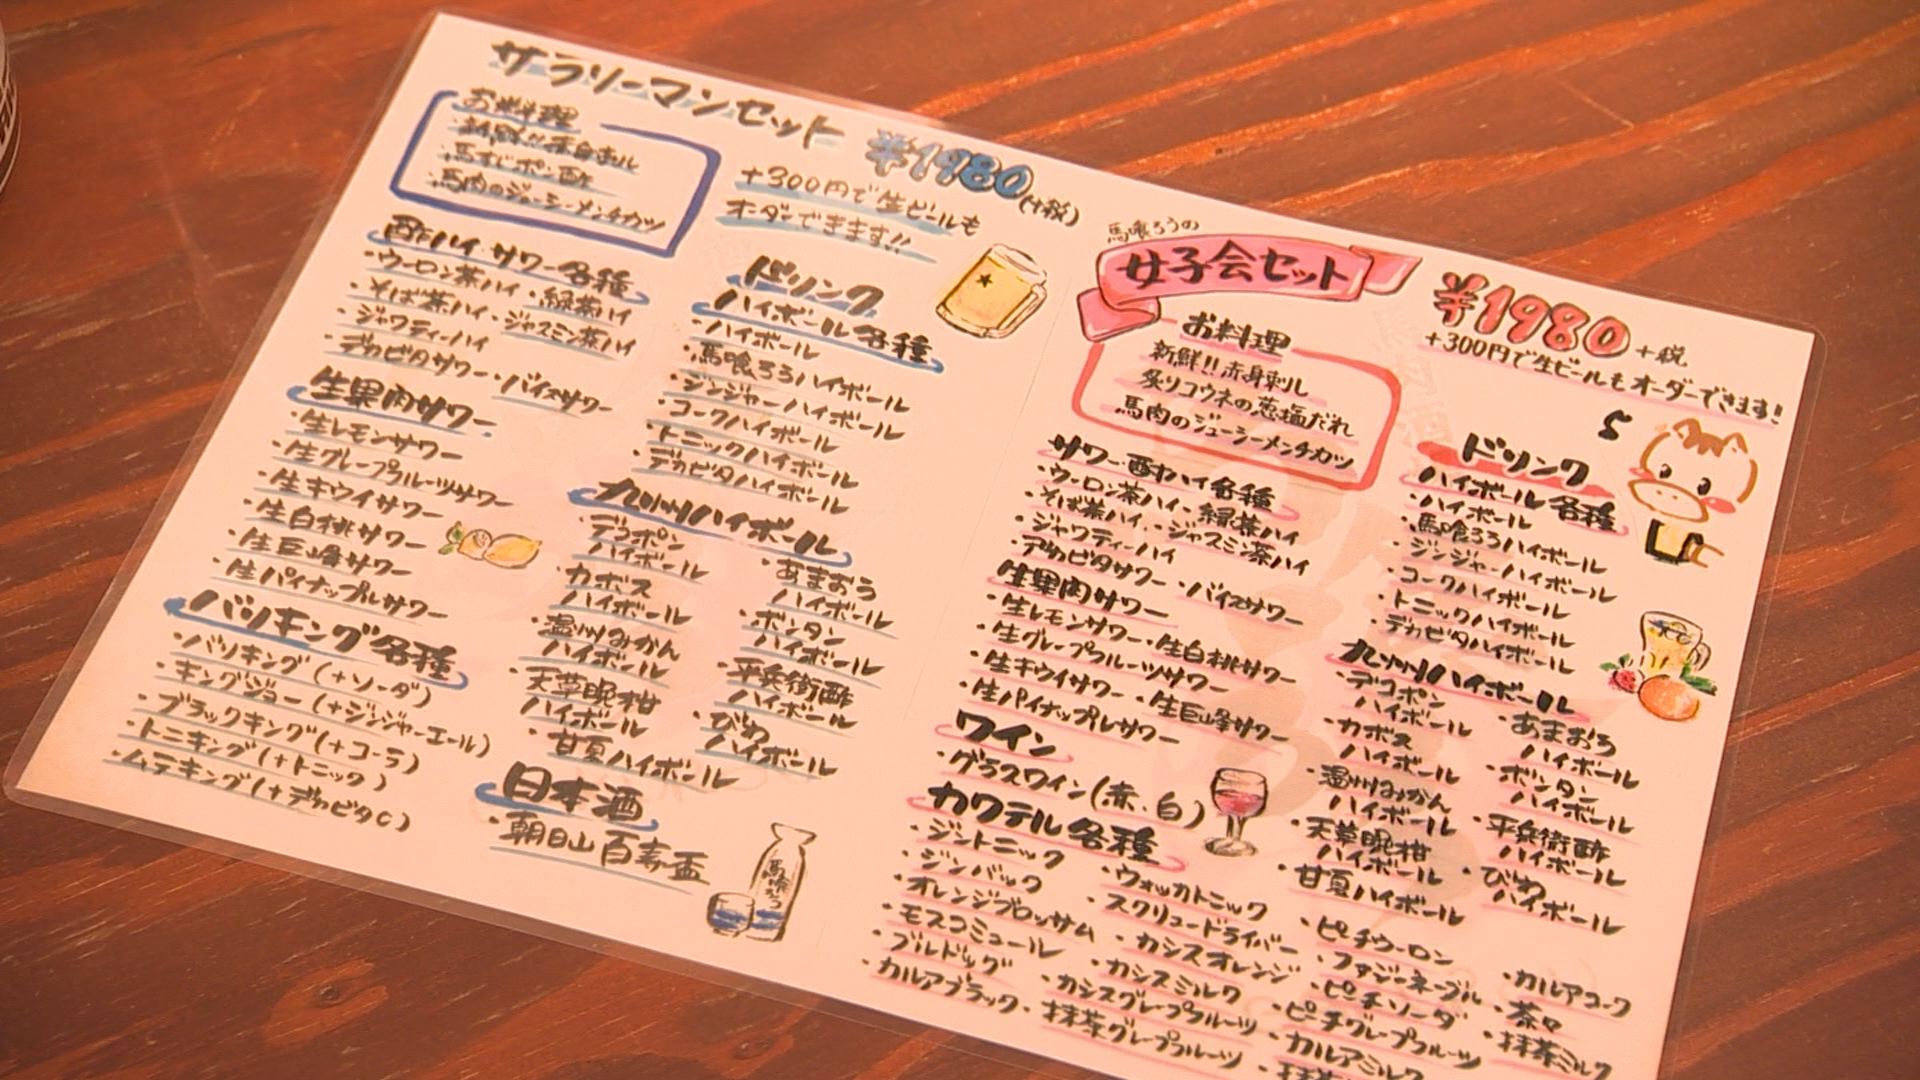 サラリーマンセット ¥1980(+税)
お料理
新鮮!!赤身刺し
馬すじポン酢
馬肉のジューシーメンチカツ
+300円で生ビールも
オーダーできます!!
酎ハイ・サワー各種
・ウーロン茶ハイ・緑茶ハイ
・そば茶ハイ・ジャスミン茶ハイ
・ジャワティーハイ
・デカビタサワー・バイスサワー
生果肉サワー
・生レモンサワー
・生グレープフルーツサワー
・生キウイサワー
・生白桃サワー
・生巨峰サワー
・生パイナップルサワー
バリキング各種
・バリキング(+ソーダ)
・キングジョー(+ジンジャーエール)
・ブラックキング(+コーラ)
・トニキング(+トニック)
・ムテキング(+デカビタC)
ドリンク
ハイボール各種
・ハイボール
・馬喰ろうハイボール
・ジンジャーハイボール
・コークハイボール
・トニックハイボール
・デカビタハイボール
九州ハイボール
・デコポン
ハイボール
・カボス
ハイボール
・温州みかん
ハイボール
・天草晩柑
ハイボール
・甘夏ハイボール
・あまおう
ハイボール
・ボンタン
ハイボール
・平兵衛酢
ハイボール
・びわ
ハイボール
日本酒
・朝日山 百寿盃
馬喰ろう
馬喰ろうの
女子会セット ¥1980+税
+300円で生ビールもオーダーできます!
お料理
新鮮!!赤身刺し
炙りコウネの葱塩だれ
馬肉のジューシーメンチカツ
サワー・酎ハイ各種
・ウーロン茶ハイ・緑茶ハイ
・そば茶ハイ・ジャスミン茶ハイ
・ジャワティーハイ
・デカビタサワー・バイスサワー
生果肉サワー
・生レモンサワー・生白桃サワー
・生グレープフルーツサワー
・生キウイサワー・生巨峰サワー
・生パイナップルサワー
ワイン
・グラスワイン(赤、白)
カクテル各種
・ジントニック
・ジンバック
・オレンジブロッサム
・モスコミュール
・ブルドッグ
・カルアブラック
・ウォッカトニック
・スクリュードライバー
・カシスオレンジ
・カシスミルク
・カシスグレープフルーツ
・抹茶グレープフルーツ
・ピーチウーロン
・ファジーネーブル
・ピーチソーダ
・ピーチグレープフルーツ
・カルアミルク
・カルアコーク
・茶々
・抹茶ミルク
ドリンク
ハイボール各種
・ハイボール
・馬喰ろうハイボール
・ジンジャーハイボール
・コークハイボール
・トニックハイボール
・デカビタハイボール
九州ハイボール
・デコポン
ハイボール
・カボス
ハイボール
・温州みかん
ハイボール
・天草晩柑
ハイボール
・甘夏ハイボール
・あまおう
ハイボール
・ボンタン
ハイボール
・平兵衛酢
ハイボール
・びわ
ハイボール